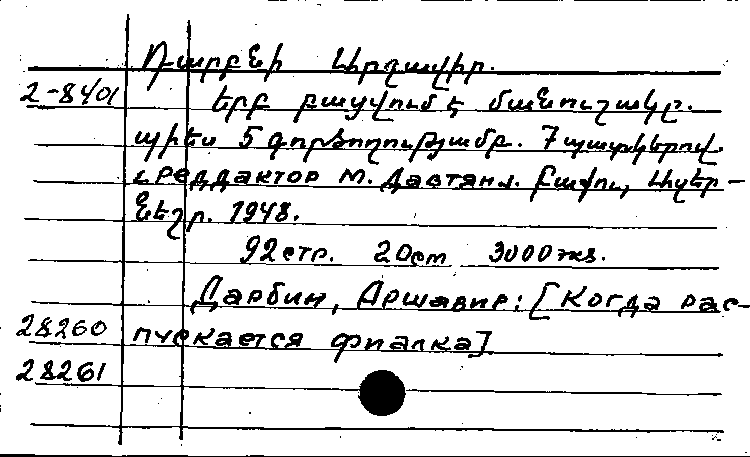 Դարբնի Արշավիր.
2-8401 Երբ բացվում է մանուշակը.
պիես 5 գործողությամբ. 7 պատկերով.
Реддактор М. Давтян. Բաքու, Ազեր-
նեշր. 1948.
92 стр. 20 cm 3000 экз.
Дарбин, Аршавир: [Когда рас-
28260 пускается фиалка]
28261